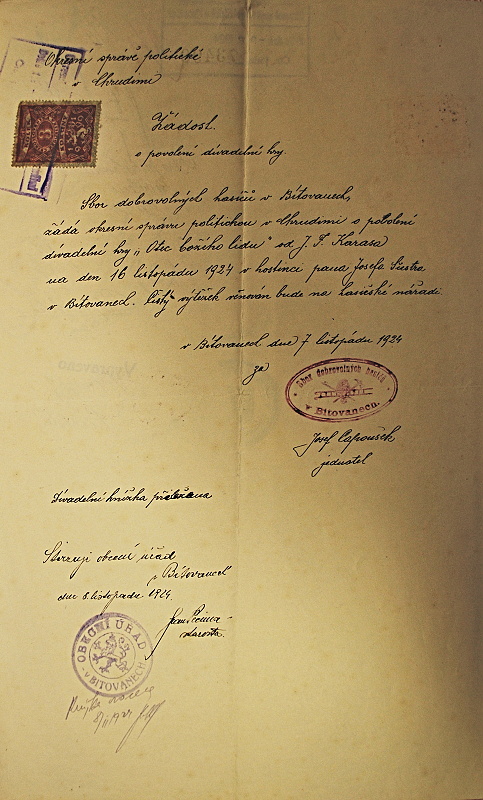 Okresní správě politické
v Chrudimi
Žádost.
o povolení divadelní hry.
Sbor dobrovolných hasičů v Bítovanech,
žádá okresní správu politickou v Chrudimi o povolení
divadelní hry „Otec božího lidu" od J. F. Karasa
na den 16 listopadu 1924 v hostinci pana Josefa
v Bítovanech. Čistý výtěžek věnován bude na hasičské nářadí.
v Bítovanech dne 7 listopadu 1924
za
Sbor dobrovolných hasičů
v Bítovanech.
Josef
jednatel
Divadelní knížka přiložena
Stvrzuje obecní úřad
v Bítovanech
dne 8. listopadu 1924.
Jan
starosta.
OBECNÍ ÚŘAD
v BÍTOVANECH